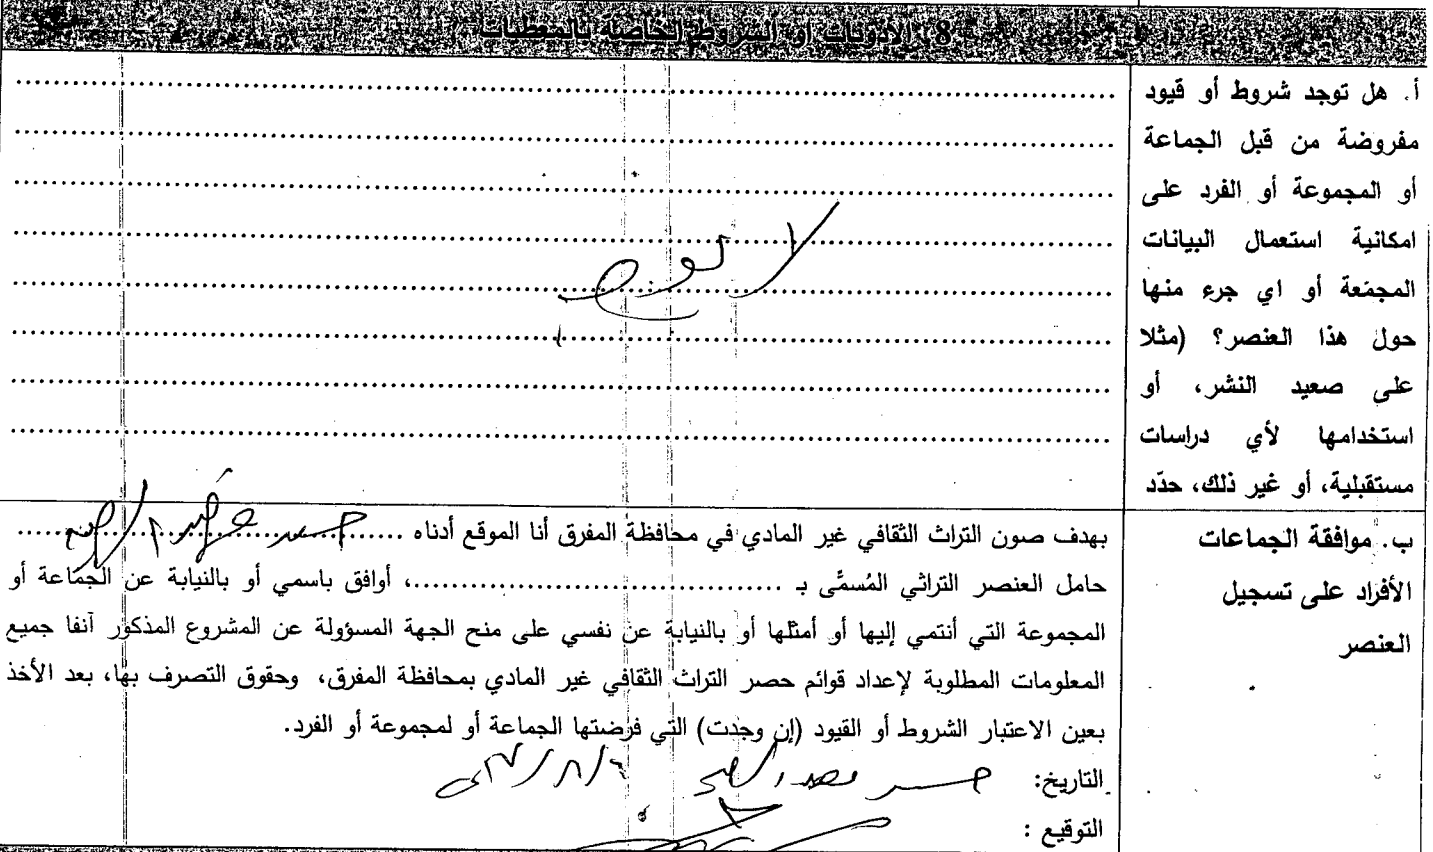 8. الأذونات أو الشروط الخاصة بالمعطيات
أ. هل توجد شروط أو قيود
مفروضة من قبل الجماعة
أو المجموعة أو الفرد على
امكانية استعمال البيانات
المجمّعة أو اي جرء منها
حول هذا العنصر؟ (مثلا
على صعيد النشر، أو
استخدامها لأي دراسات
مستقبلية، أو غير ذلك، حدّد
لا يوجد
ب. موافقة الجماعات
الأفراد على تسجيل
العنصر
بهدف صون التراث الثقافي غير المادي في محافظة المفرق أنا الموقع أدناه ........
حامل العنصر التراثي المُسمَّى بـ .......................................، أوافق باسمي أو بالنيابة عن الجماعة أو
المجموعة التي أنتمي إليها أو أمثلها أو بالنيابة عن نفسي على منح الجهة المسؤولة عن المشروع المذكور آنفا جميع
المعلومات المطلوبة لإعداد قوائم حصر التراث الثقافي غير المادي بمحافظة المفرق، وحقوق التصرف بها، بعد الأخذ
بعين الاعتبار الشروط أو القيود (إن وجدت) التي فرضتها الجماعة أو لمجموعة أو الفرد.
التاريخ:
التوقيع :